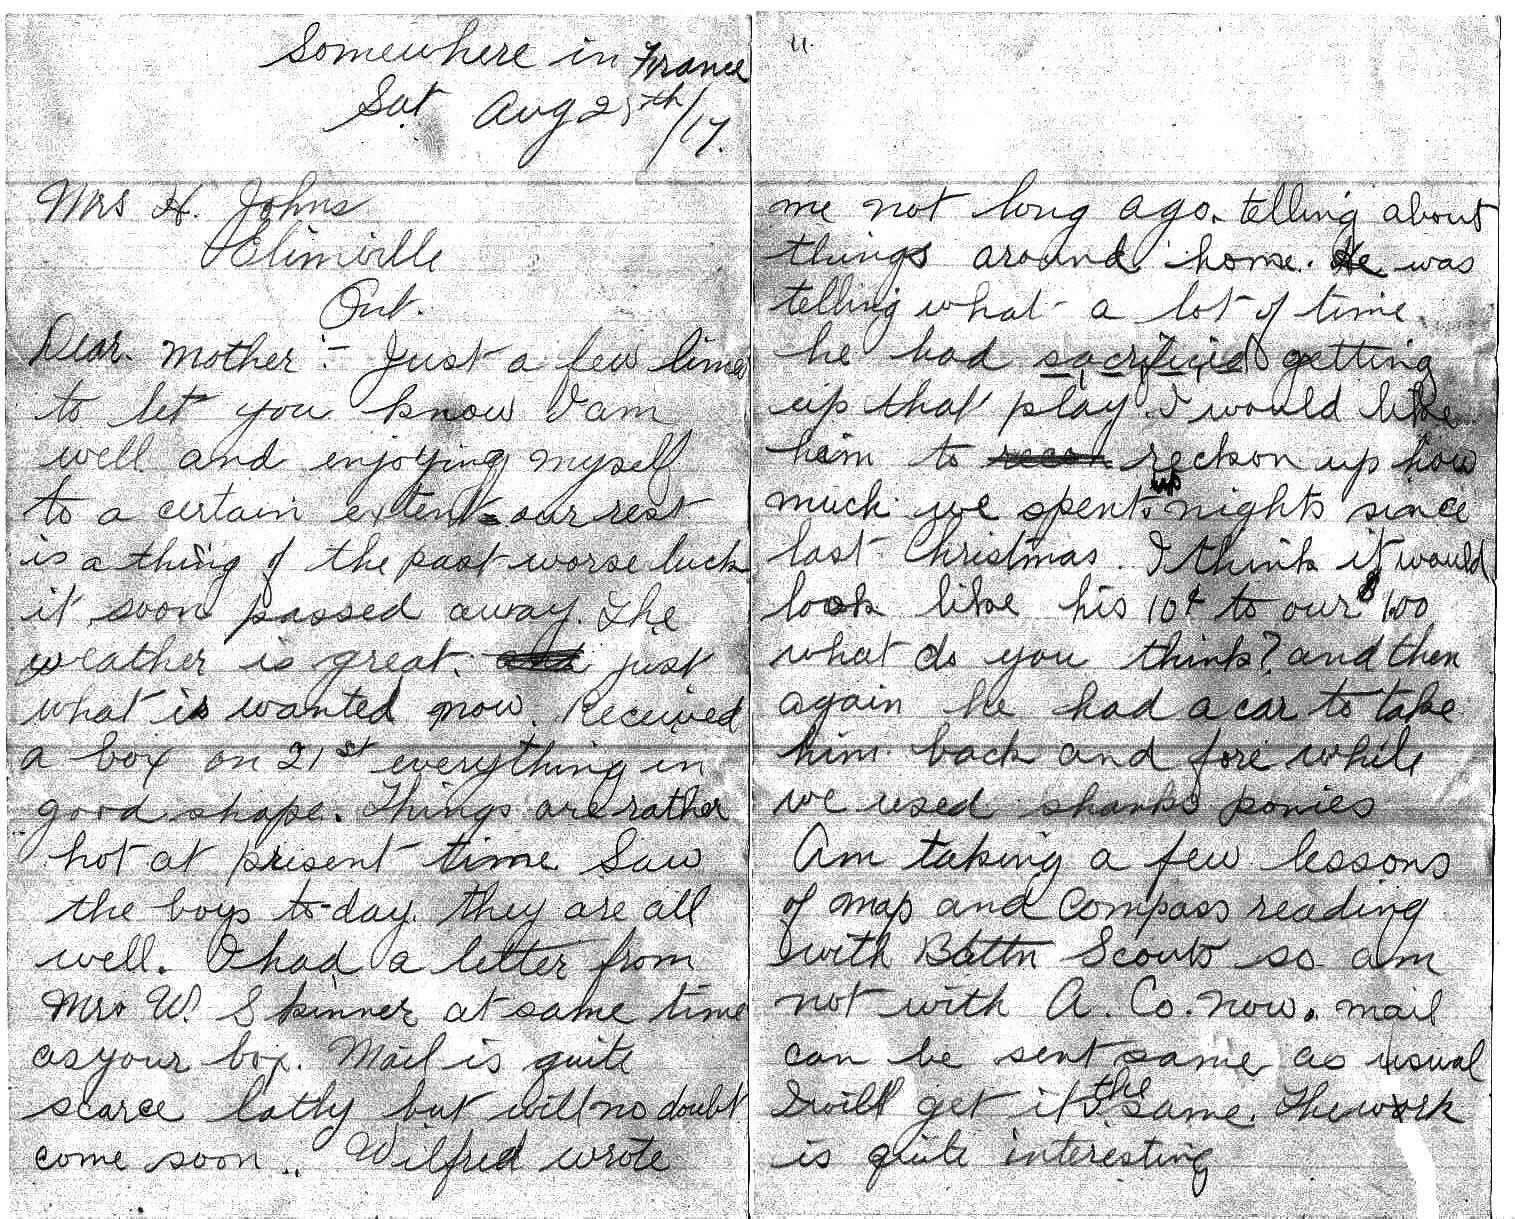 Somewhere in France
Sat Aug 25th/17.
Mrs H. Johns
Elimville
Ont.
Dear Mother:- Just a few lines
to let you know I am
well and enjoying myself
to a certain extent our rest
is a thing of the past worse luck
it soon passed away. The
weather is great. just
what is wanted now. Received
a box on 21st everything in
good shape. Things are rather
hot at present time Saw
the boys to-day. they are all
well. I had a letter from
Mrs W. Skinner at same time
as your box. Mail is quite
scarce latly but will no doubt
come soon.. Wilfred wrote
11.
me not long ago. telling about
things around home. He was
telling what a lot of time
he had sacrificied getting
up that play. I would like
him to recon reckon up how
much we spent up nights since
last Christmas. I think it would
look like his 10¢ to our $1.00
what do you think? and then
again he had a car to take
him back and fore while
we used shanks ponies
Am taking a few lessons
of map and Compass reading
with Battn Scouts so am
not with A. Co. now. mail
can be sent same as usual
I will get it the same. The work
is quite interesting